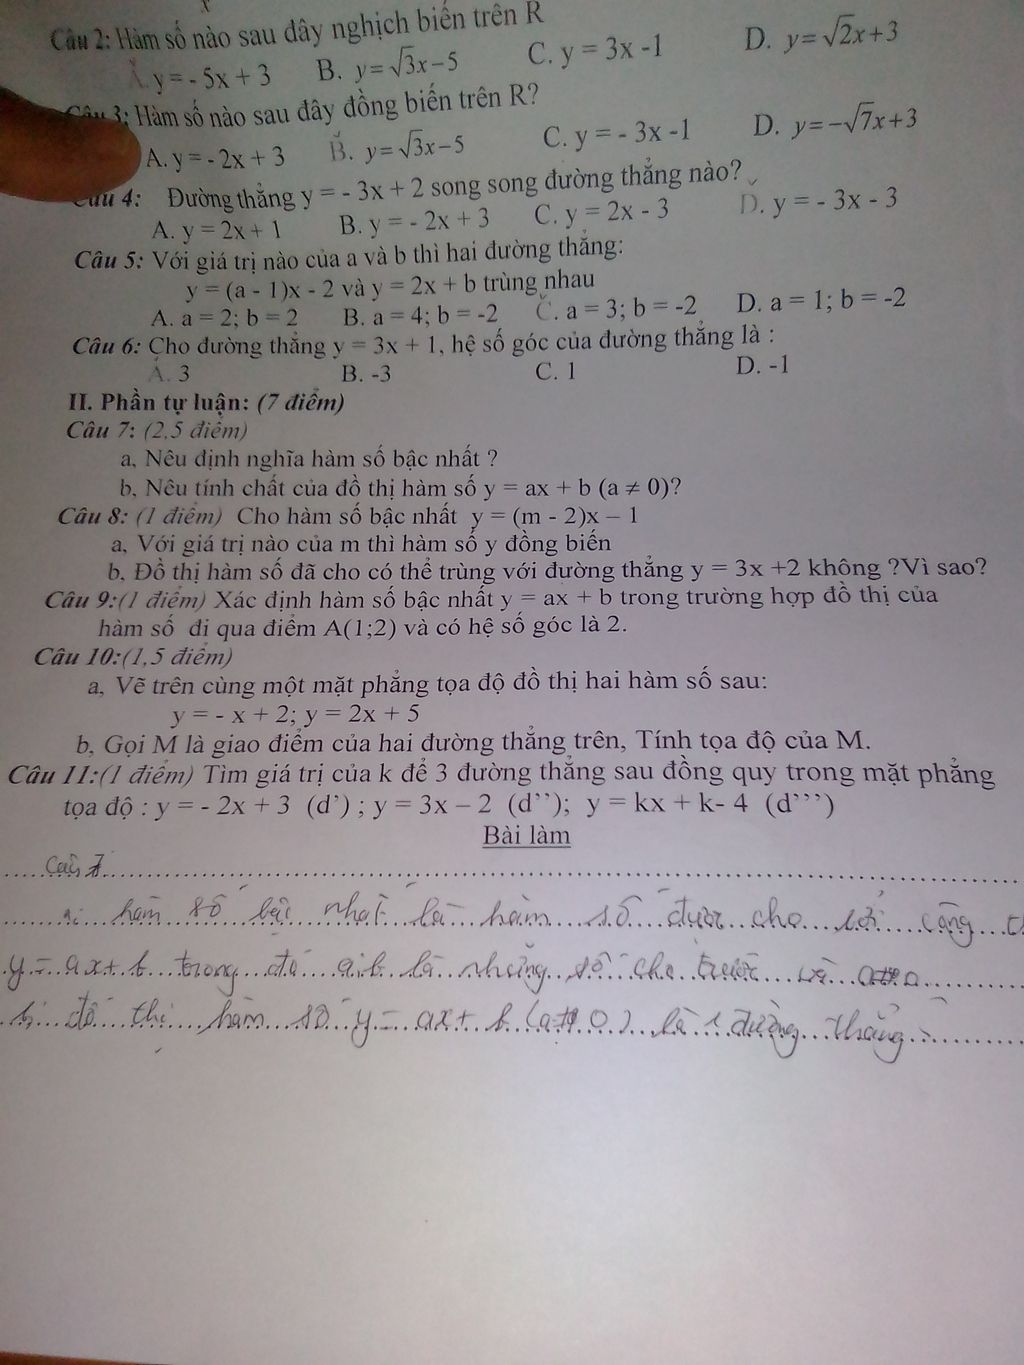 Câu 2: Hàm số nào sau đây nghịch biến trên R
A. y = - 5x + 3 B. y = √3x − 5 C. y = 3x -1 D. y = √2x + 3
Câu 3: Hàm số nào sau đây đồng biến trên R?
A. y = - 2x + 3 B. y = √3x − 5 C. y = - 3x -1 D. y = −√7x + 3
Câu 4: Đường thẳng y = - 3x + 2 song song đường thẳng nào?
A. y = 2x + 1 B. y = - 2x + 3 C. y = 2x - 3 D. y = - 3x - 3
Câu 5: Với giá trị nào của a và b thì hai đường thẳng:
y = (a - 1)x - 2 và y = 2x + b trùng nhau
A. a = 2; b = 2 B. a = 4; b = -2 C. a = 3; b = -2 D. a = 1; b = -2
Câu 6: Cho đường thẳng y = 3x + 1, hệ số góc của đường thẳng là :
A. 3 B. -3 C. 1 D. -1
II. Phần tự luận: (7 điểm)
Câu 7: (2,5 điểm)
a, Nêu định nghĩa hàm số bậc nhất ?
b, Nêu tính chất của đồ thị hàm số y = ax + b (a ≠ 0)?
Câu 8: (1 điểm) Cho hàm số bậc nhất y = (m - 2)x – 1
a, Với giá trị nào của m thì hàm số y đồng biến
b, Đồ thị hàm số đã cho có thể trùng với đường thẳng y = 3x +2 không ?Vì sao?
Câu 9:(1 điểm) Xác định hàm số bậc nhất y = ax + b trong trường hợp đồ thị của
hàm số đi qua điểm A(1;2) và có hệ số góc là 2.
Câu 10:(1,5 điểm)
a, Vẽ trên cùng một mặt phẳng tọa độ đồ thị hai hàm số sau:
y = - x + 2; y = 2x + 5
b, Gọi M là giao điểm của hai đường thẳng trên, Tính tọa độ của M.
Câu 11:(1 điểm) Tìm giá trị của k để 3 đường thẳng sau đồng quy trong mặt phẳng
tọa độ : y = - 2x + 3 (d’) ; y = 3x – 2 (d’’); y = kx + k- 4 (d’’’)
Bài làm
Câu 7
a, hàm số bậc nhất là hàm số được cho bởi công
y = ax + b trong đó a, b là những số cho trước và a ≠ 0
b, đồ thị hàm số y = ax + b (a ≠ 0) là 1 đường thẳng